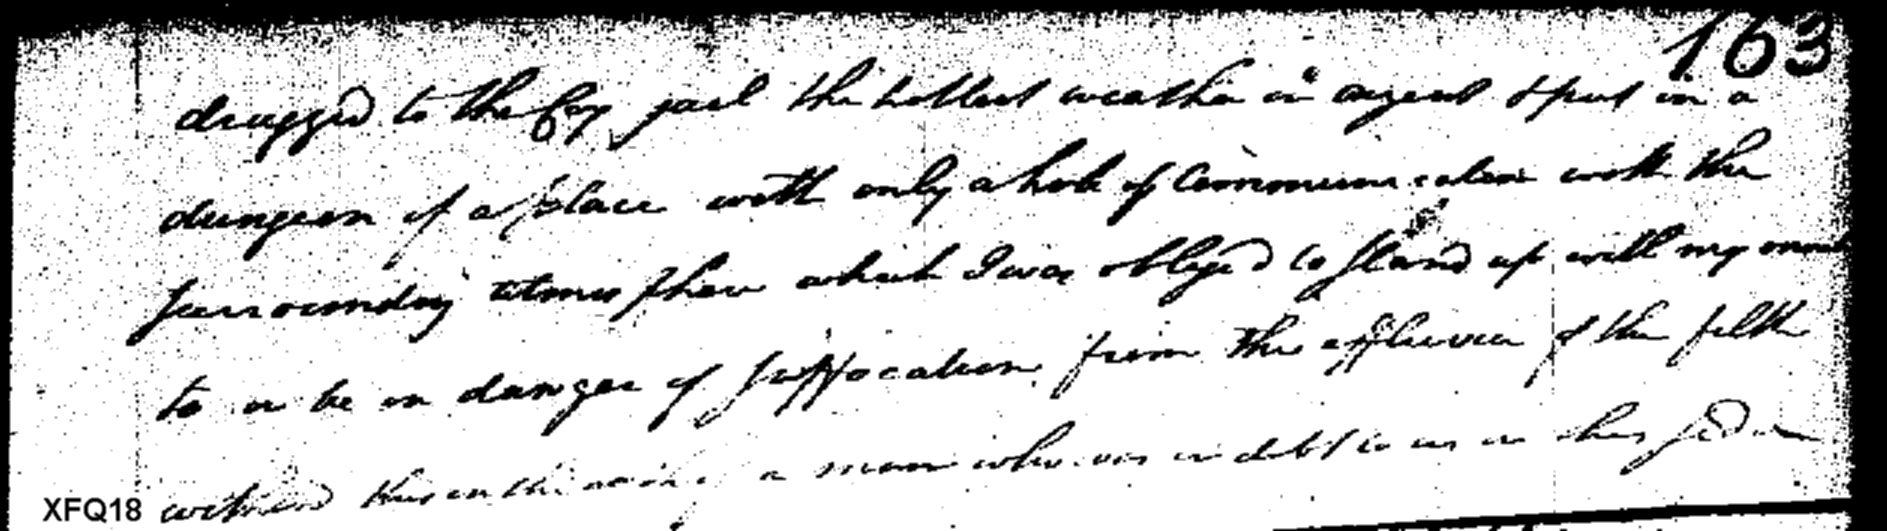 163
dragged to the Coy jail the hottest weather in august & put in a
dungeon of a place with only a hole of Communication with the
surrounding atmosphere which I was obliged to stand up with my mouth
to or be in danger of suffocation from the effluvia of the filth
within this in the a man who was in debt to us in
XFQ18